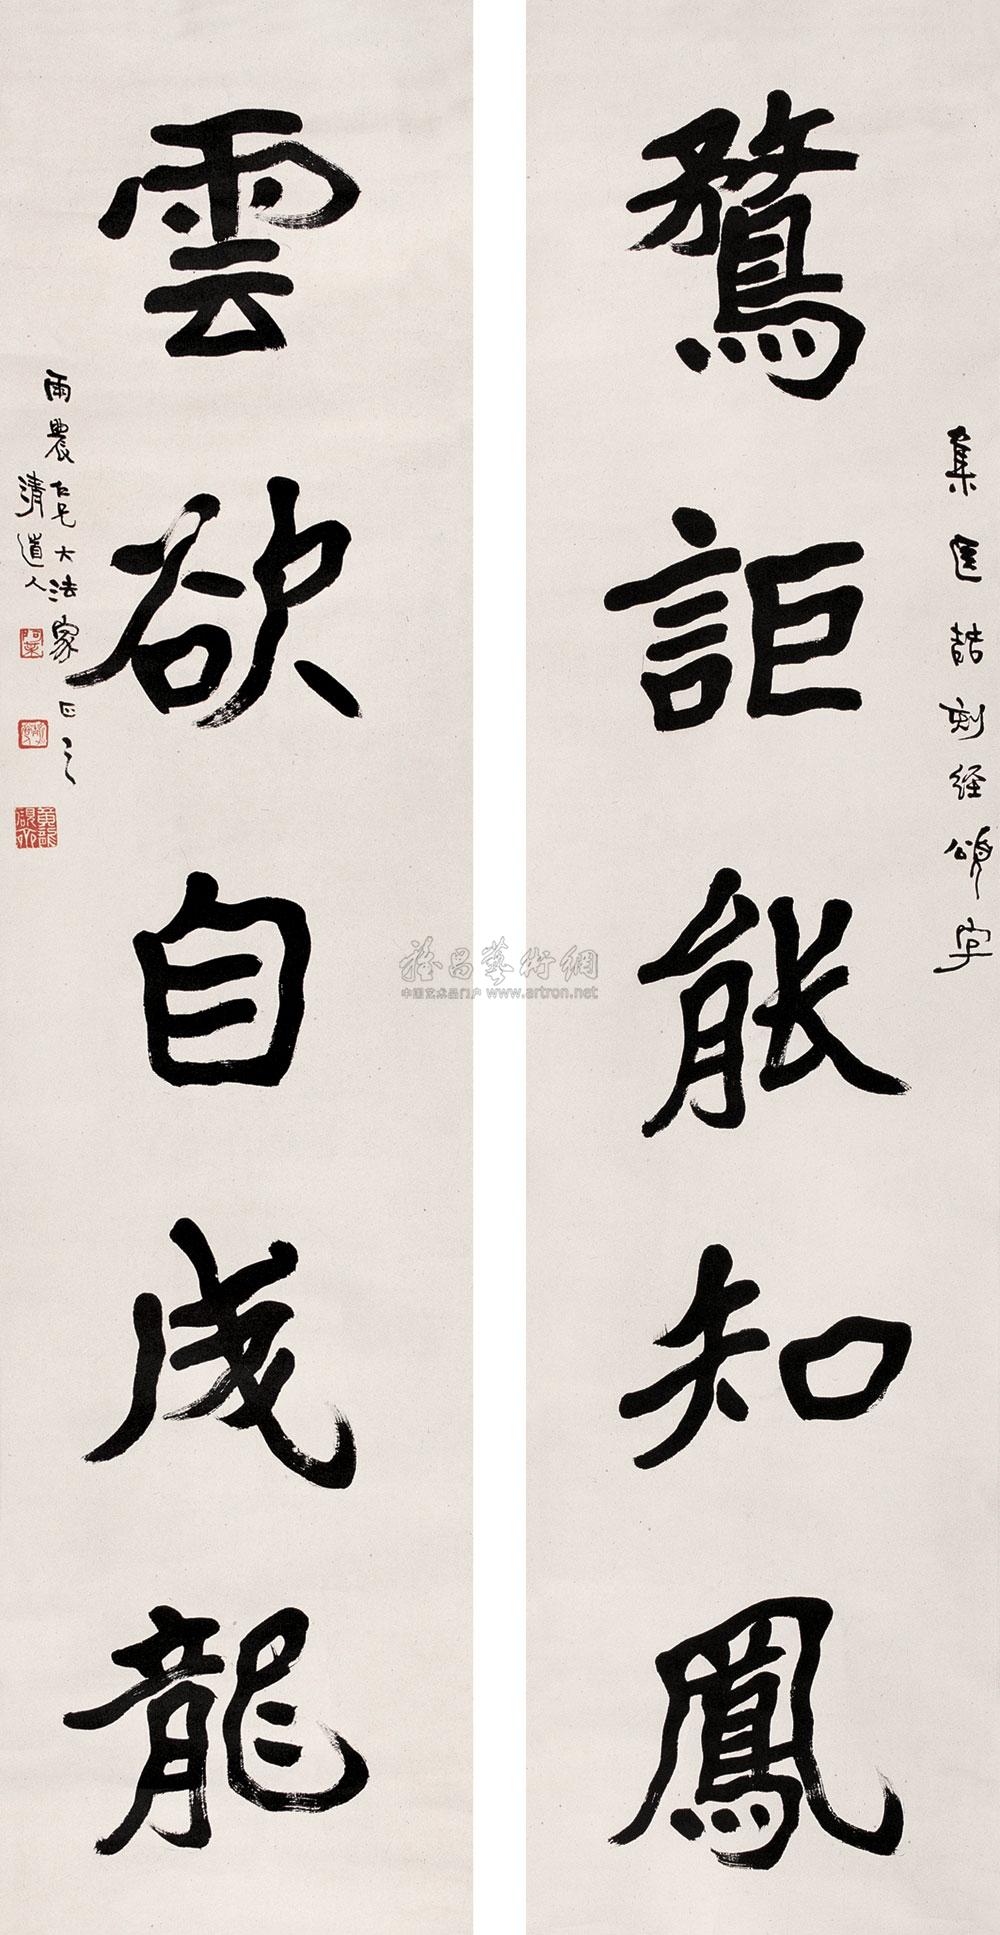 鶩詎能知鳳
集匡喆刻经頌字
雲欲自成龍
雨農仁兄大法家正之
清道人
雅昌藝術網
中国艺术品门户 www.artron.net